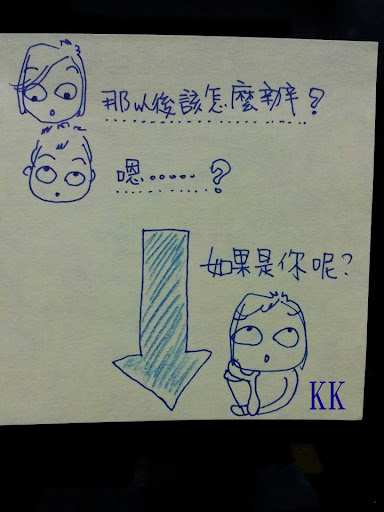 那以後該怎麼辦?
嗯……?
如果是你呢?
KK